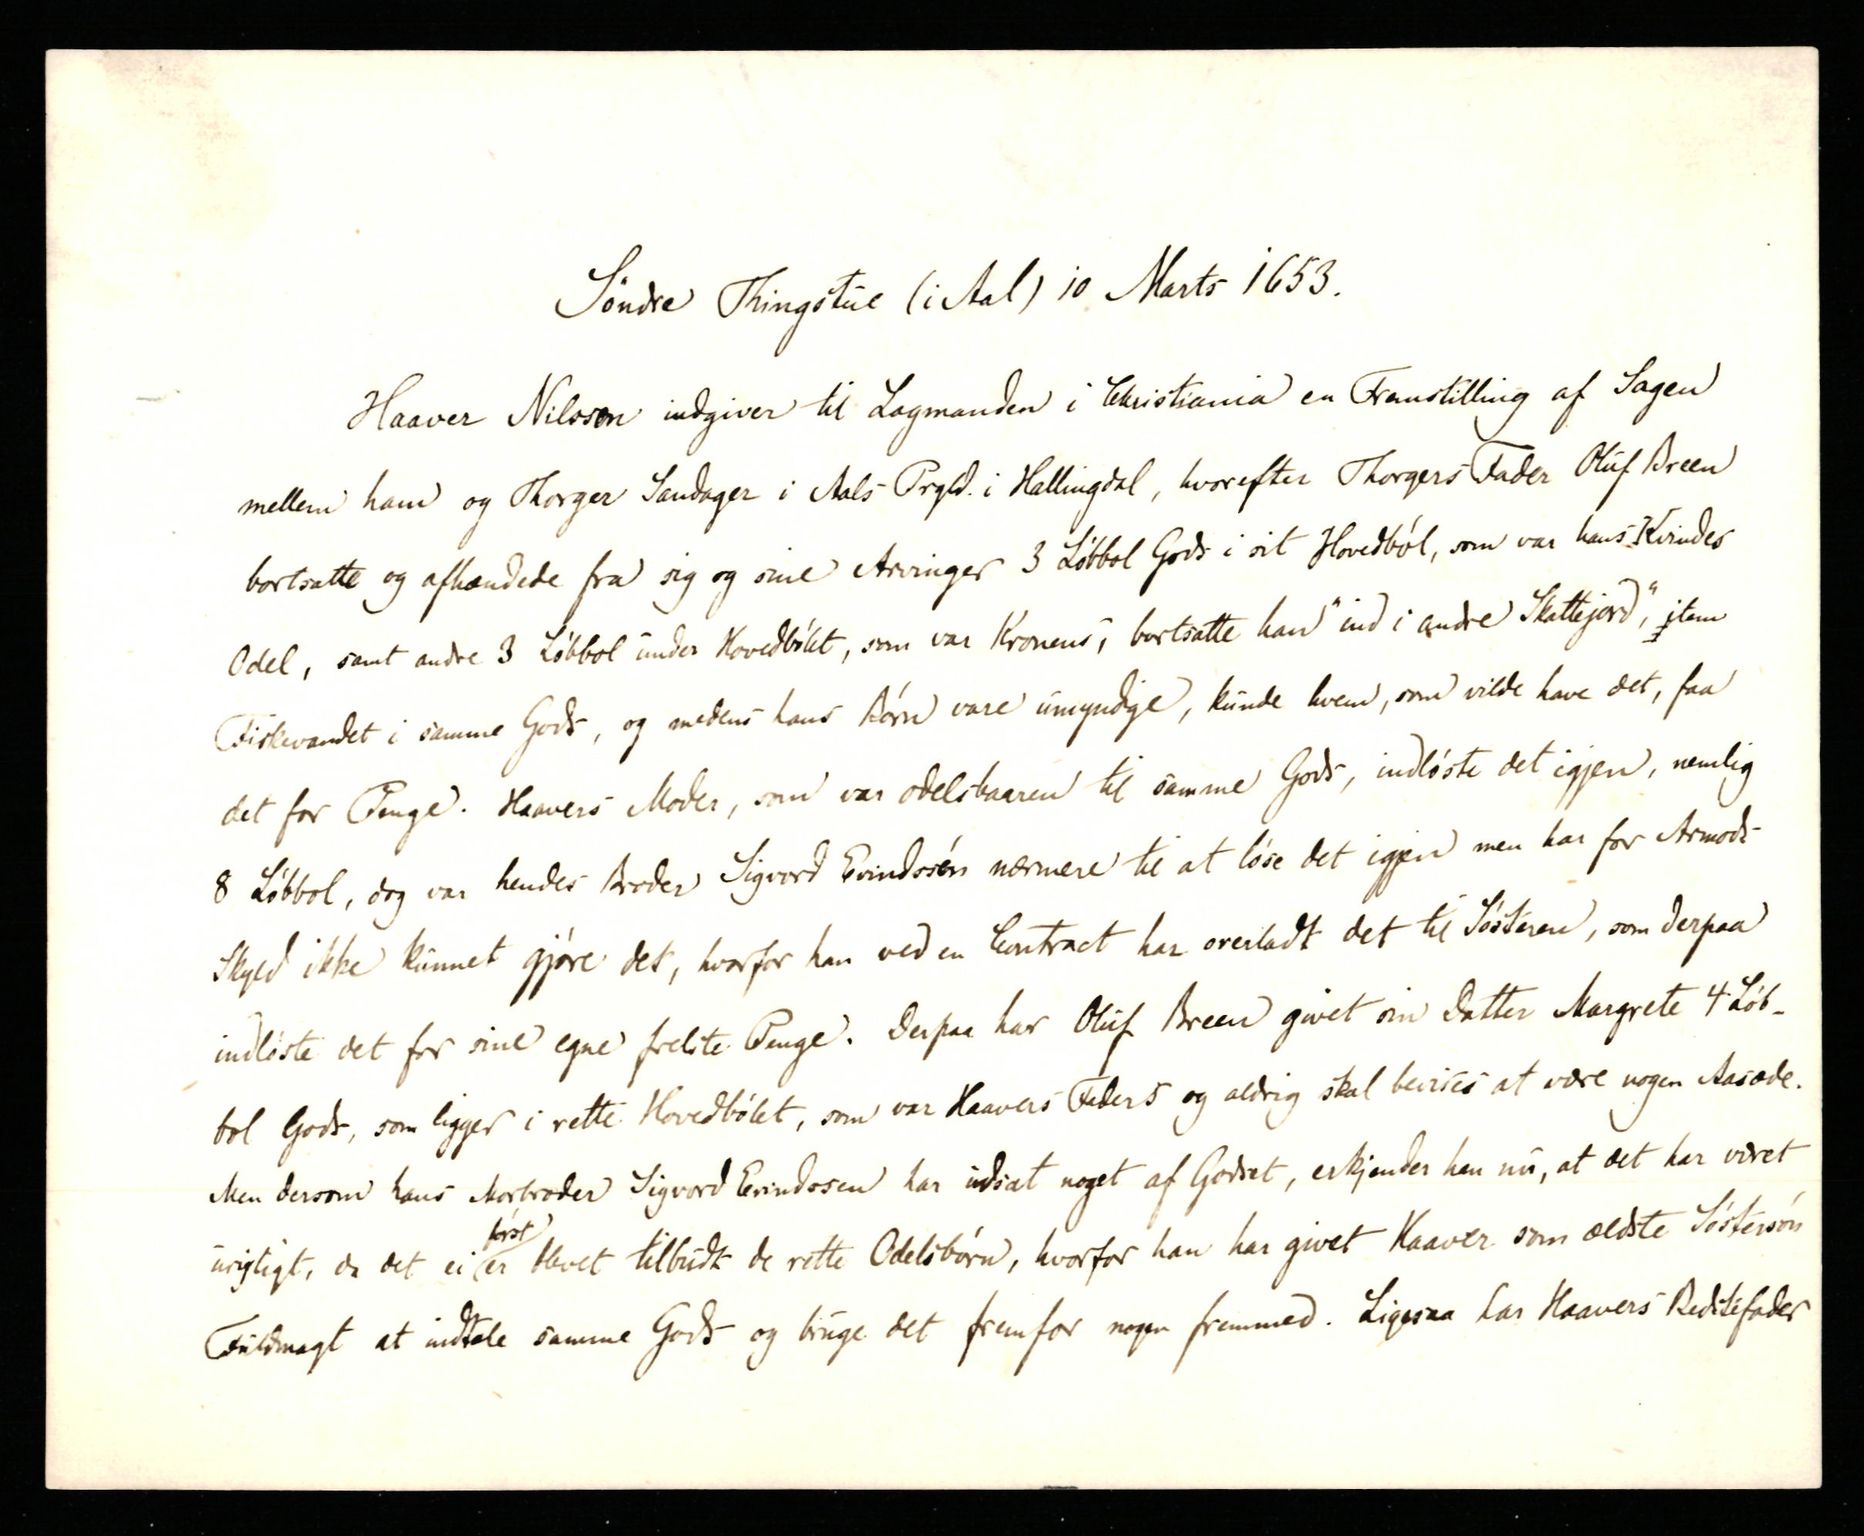 Söndre Thingstue (i Aal) 10 Marts 1653.
Haaver Nilssen indgiver til Lagmanden i Christiania en Fremstilling af Sagen
mellem ham og Thorger Sandager i Aals Prgld. i Hallingdal, hvorefter Thorgers Fader Oluf Breen
bortsatte og afhændede fra sig og sine Arvinger 3 Løbbol Gods i sit Hovedból, som var hans Kvindes
Odel, samt andre 3 Løbbol under Hovedbólet, som var Kronens, bortsatte han "ind i andre Skattejord", item
Fiskevandet i samme Gods, og medens hans Börn vare umyndige, kunde hvem, som vilde have det, faa
det for Penge. Haavers Moder, som var odelsbaaren til samme Gods, indlöste det igjen, nemlig
8 Løbbol, dog var hendes Broder Sigvord Evindssön nærmere til at löse det igjen men har for Armods
Skyld ikke kunnet gjöre det, hvorfor han ved en Contract har overladt det til Søsteren, som derpaa
indløste det for sine egne frelste Penge. Derpaa har Oluf Breen givet sin Datter Margrete 4 Løb-
bol Gods, som ligger i rette Hovedbólet, som var Haavers Faders og aldrig skal bevises at være nogen Aasæde.
Men dersom hans Morbroder Sigvord Evindssen har udsat noget af Godset, erkjender han nu, at det har været
urigtigt, da det ei först er blevet tilbudt de rette Odelsbörn, hvorfor han har givet Haaver som ældste Søstersön
Fuldmagt at indtale samme Gods og bruge det fremfor nogen fremmed. Ligesaa har Haavers Bedstefader